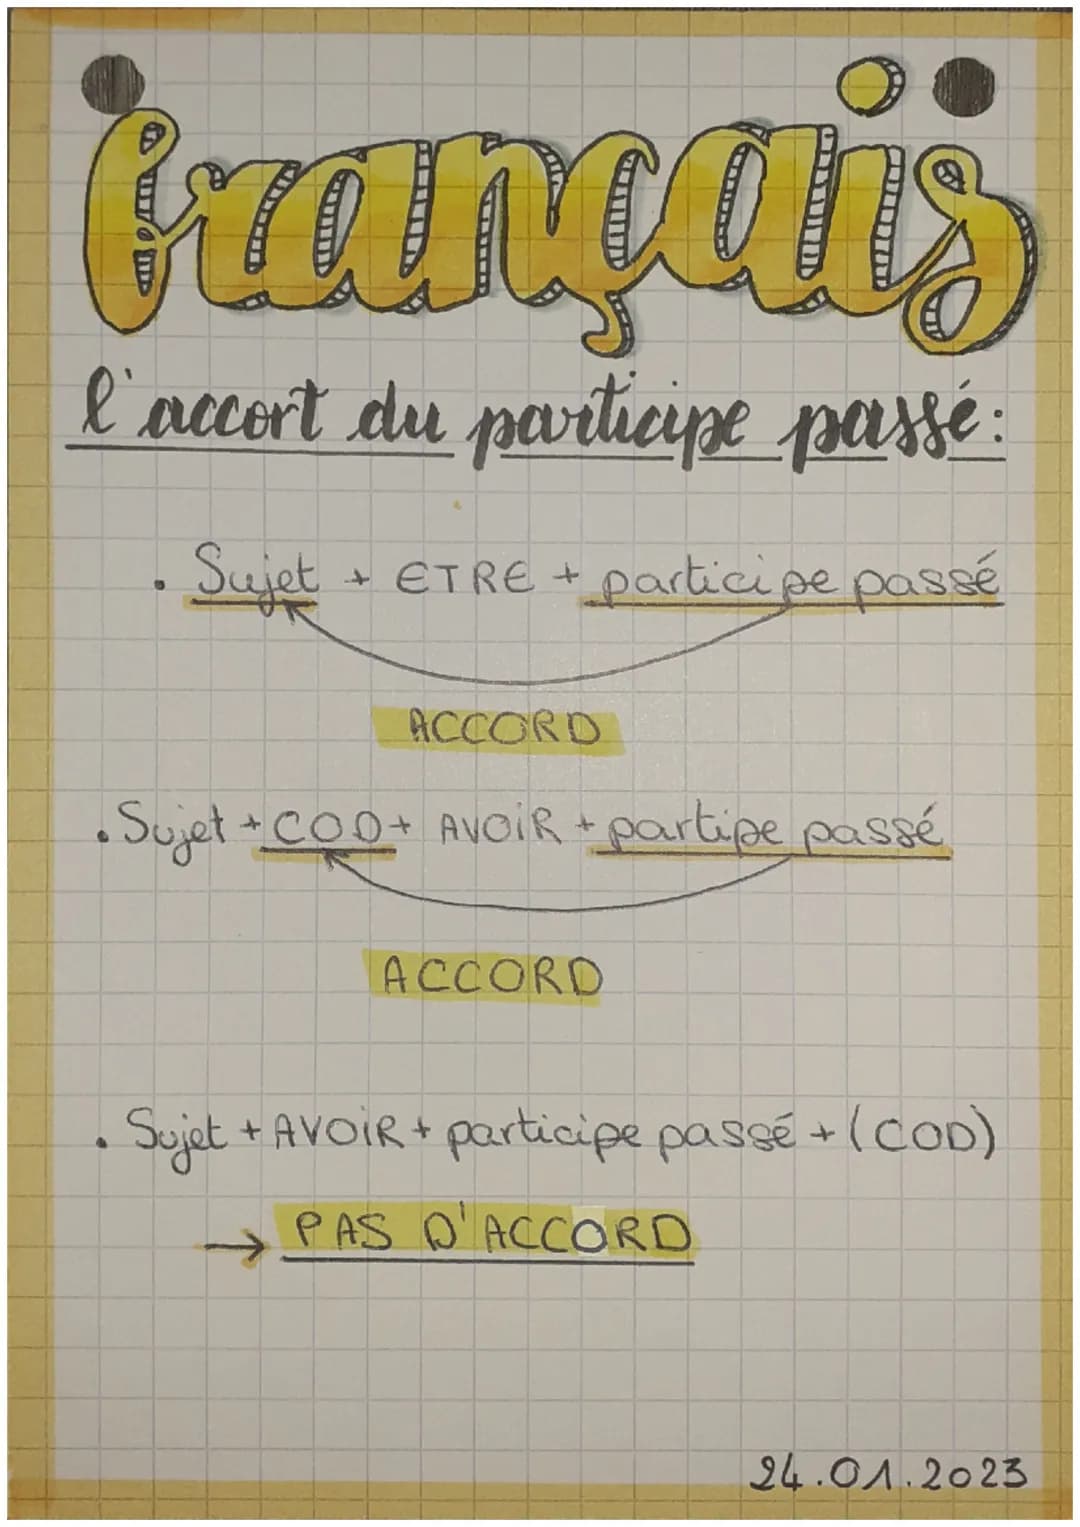 français
l'accort du participe passé:
. Sujet + ETRE + participe passé
ACCORD
. Sujet + COD + AVOIR + partipe passé
ACCORD
. Sujet + AVOIR + participe passé + (COD)
→ PAS D'ACCORD
24.01.2023